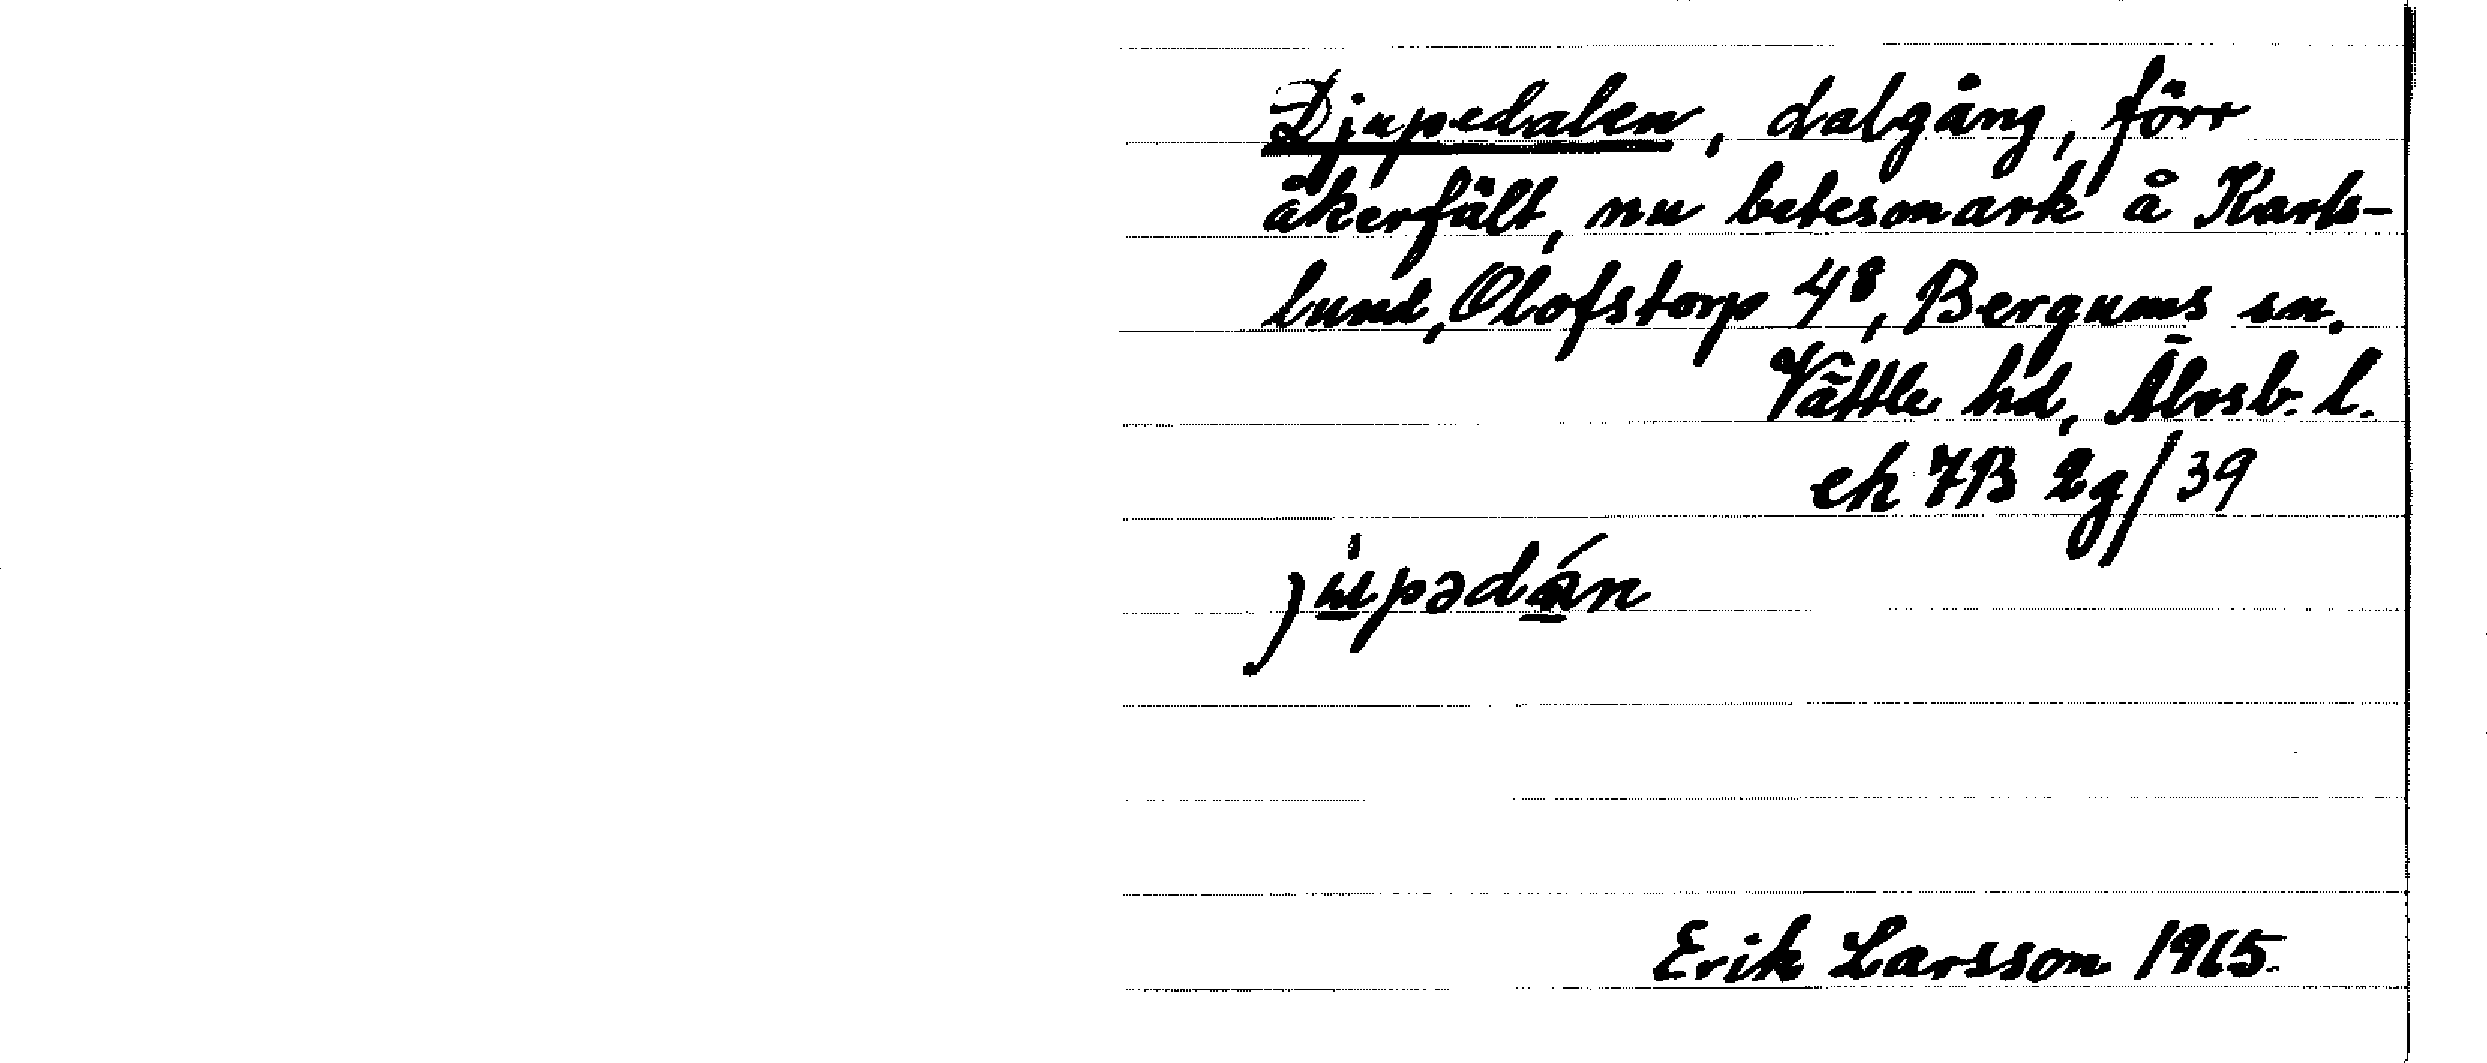 Djupedalen, dalgång, förr
åkerfält, nu betesmark å Karls-
lund, Olofstorp 4⁸, Bergums sn.
Vättle hd, Älvsb. l.
ek 7B 2g/39
jupədán
Erik Larsson 1965.